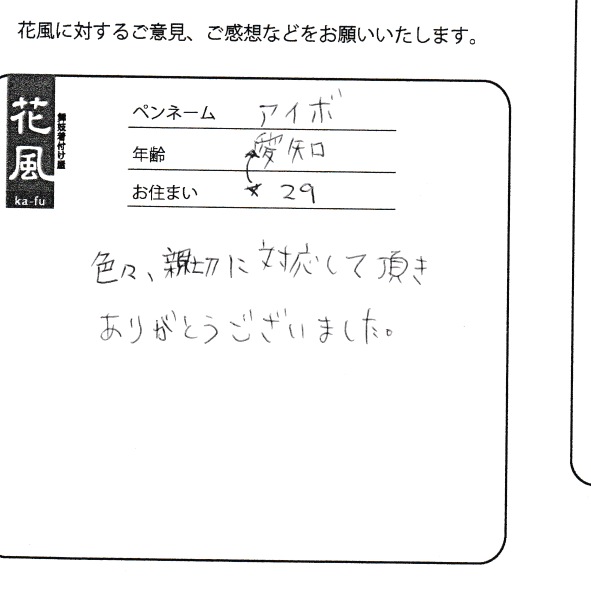 花風に対するご意見、ご感想などをお願いいたします。
花風
舞妓着付け屋
ka-fu
ペンネーム アイボ
年齢 愛知
お住まい 29
色々、親切に対応して頂き
ありがとうございました。